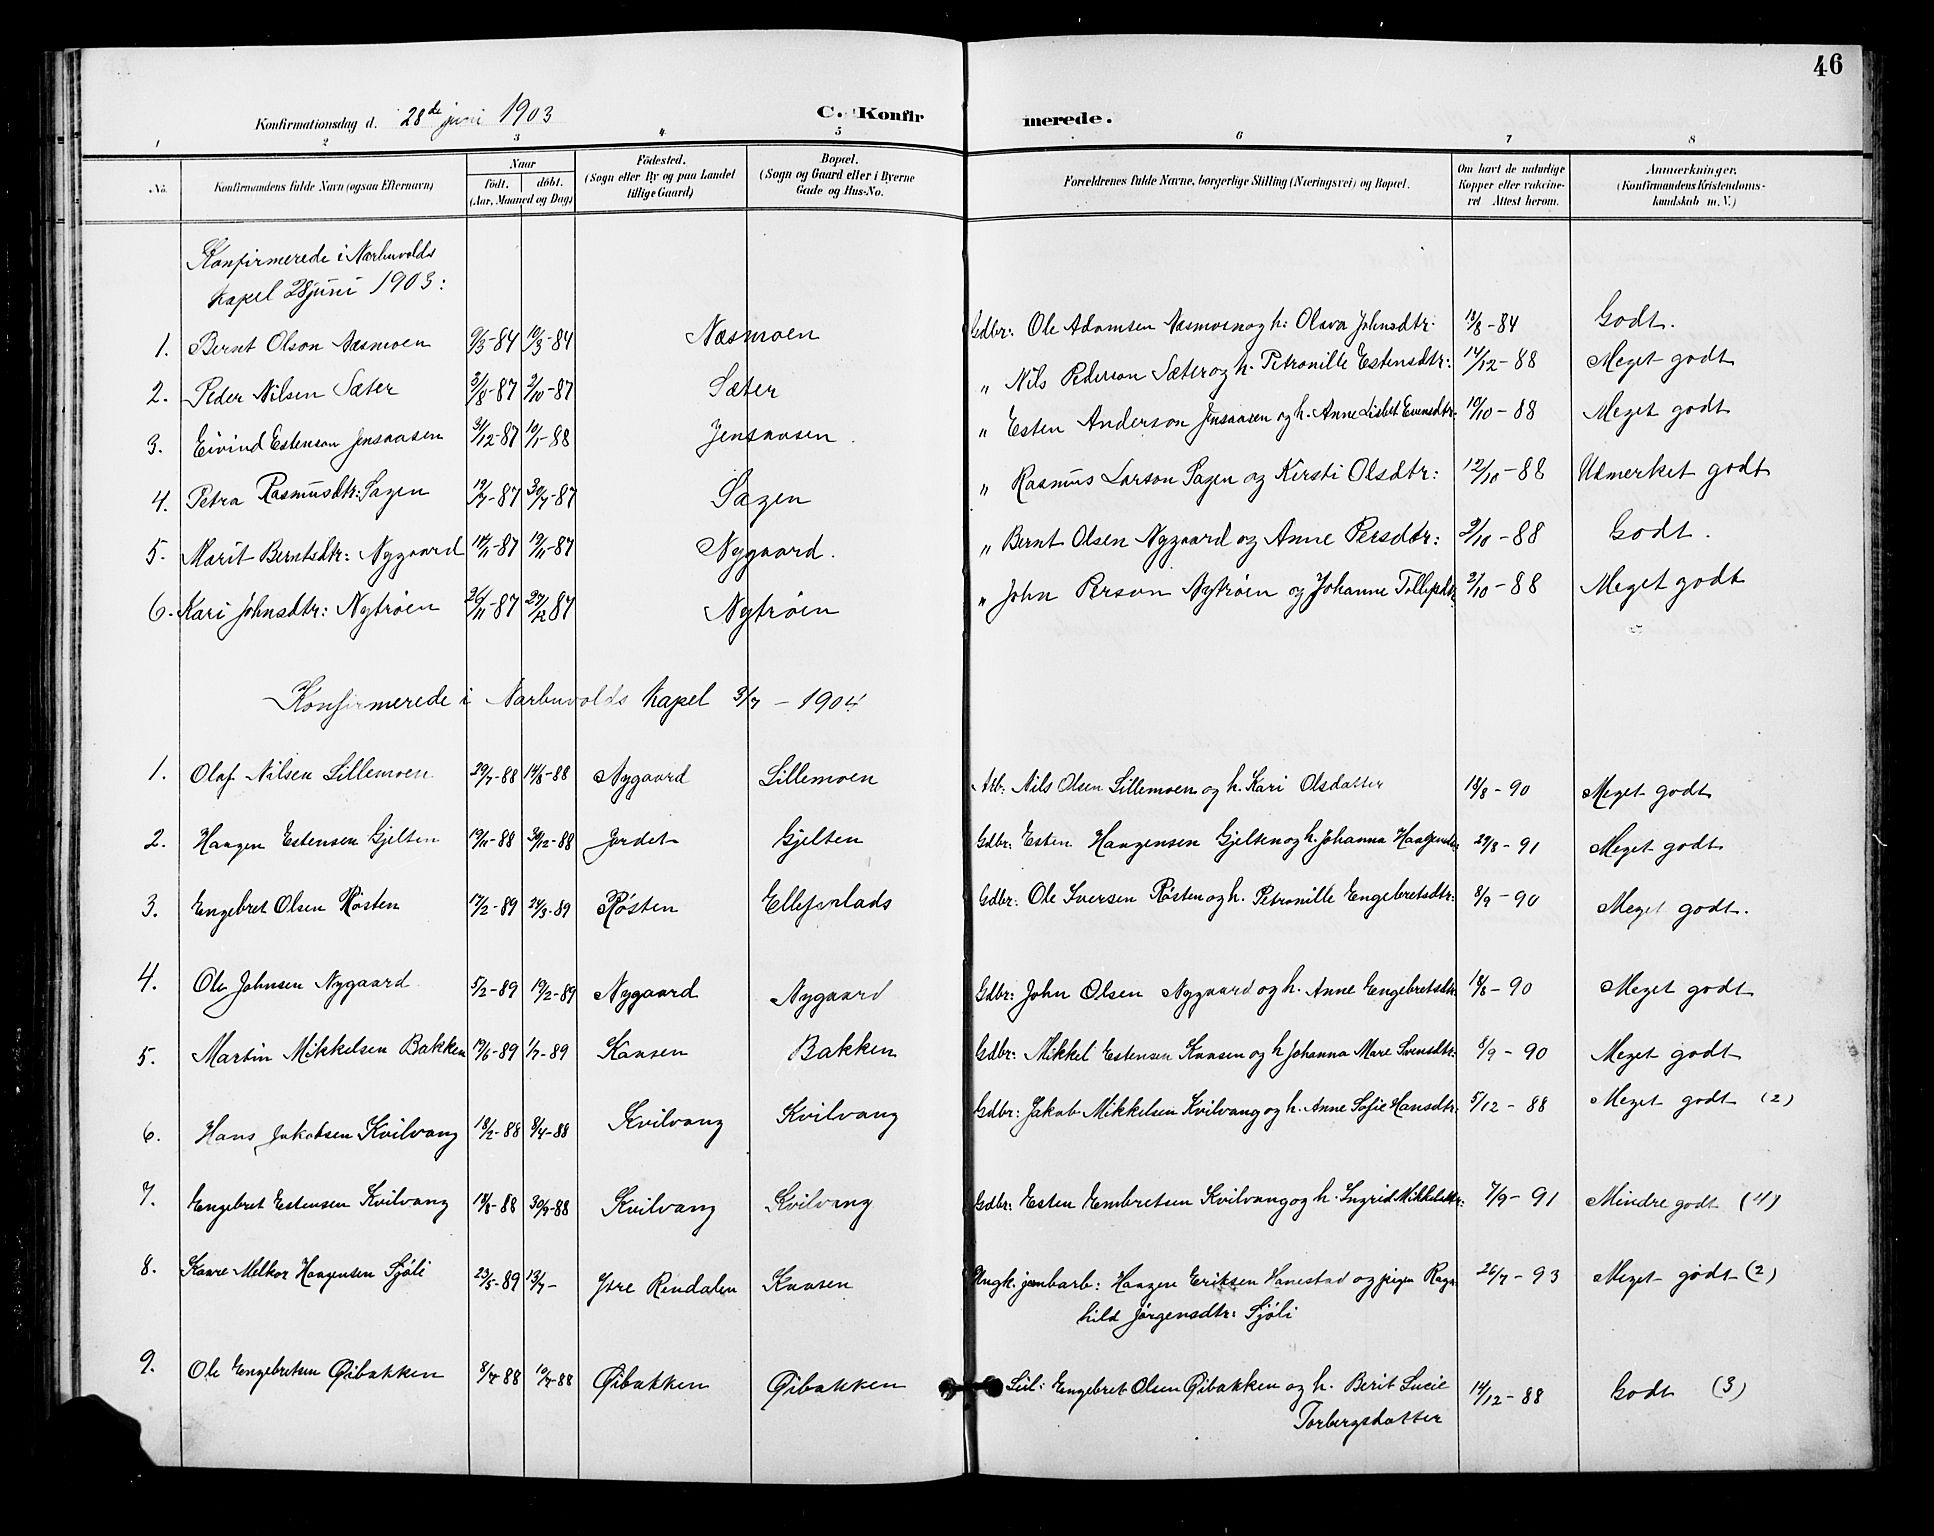 46
Konfirmationsdag d. 28de juni 1903 C. Konfirmerede.
1 2 3 4 5 6 7 8
No. Konfirmandens fulde Navn (ogsaa Efternavn) Naar født. døbt. (Aar, Maaned og Dag) Fødested. (Sogn eller By og paa Landet tillige Gaard) Bopæl. (Sogn og Gaard eller i Byerne Gade og Hus-No. Forældrenes fulde Navne, borgerlige Stilling (Næringsvei) og Bopæl. Om havt de naturlige Kopper eller vakcineret Attest herom. Anmerkninger. (Konfirmandens Kristendomskundskab m. V.)
Konfirmerede i Narbuvolds
Kapel 28 juni 1903:
1. Bernt Olson Næsmoen 9/3-84 19/3-84 Næsmoen Gdbr: Ole Adamsen Næsmoen og h: Olava Johnsdtr. 18/8-84 Godt.
2. Peder Nilsen Sæter 3/8-87 2/10-87 Sæter " Nils Pederson Sæter og h. Petronille Estensdtr: 14/12-88 Meget godt
3. Eivind Estenson Jensaasen 31/12-87 10/1-88 Jensaasen. " Esten Anderson Jensaasen og h. Anne Lisbet Evensdtr. 10/10-88 Meget godt
4. Petra Rasmusdtr: Sagen 19/7-87 30/7-87 Sagen " Rasmus Larson Sagen og Kirsti Olsdtr: 12/10-88 Udmerket godt
5. Marit Berntsdtr: Nygaard 14/11-87 19/11-87 Nygaard. " Bernt Olsen Nygaard og Anne Persdtr: 2/10-88 Godt.
6. Kari Johnsdtr: Nytrøen 26/11-87 27/12-87 Nytrøen " John Person Nytrøen og Johanne Tollefsdtr 2/10-88 Meget godt
Konfirmerede i Narbuvolds Kapel 3/7-1904
1. Olaf Nilsen Lillemoen 29/7-88 14/8-88 Nygaard Lillemoen Arb: Nils Olsen Lillemoen og h. Kari Olsdatter 18/8-90 Meget godt
2. Haagen Estensen Gjelten 19/11-88 30/12-88 Jordet Gjelten Gdbr: Esten Haagensen Gjelten og h. Johanna Haagensdtr 29/8-91 Meget godt
3. Engebret Olsen Røsten 17/2-89 24/3-89 Røsten Ellefsplads Gdbr: Ole Iversen Røsten og h. Petronille Engebretsdtr: 8/9-90 Meget godt.
4. Ole Johnsen Nygaard 5/2-89 19/2-89 Nygaard Nygaard Gdbr: John Olsen Nygaard og h. Anne Engebretsdtr 18/8-90 Meget godt
5. Martin Mikkelsen Bakken 19/6-89 1/7-89 Kaasen Bakken Gdbr: Mikkel Estensen Kaasen og h Johanna Mare Svensdtr: 8/9-90 Meget godt
6. Hans Jakobsen Kvilvang 18/2-88 8/4-88 Kvilvang Kvilvang Gdbr: Jakob Mikkelsen Kvilvang og h. Anne Sofie Hansdtr. 5/12-88 Meget godt (2)
7. Engebret Estensen Kvilvang 18/8-88 30/9-88 Kvilvang Kvilvang Gdbr: Esten Embretsen Kvilvang og h. Ingrid Mikkelsdtr: 7/9-91 Mindre godt (4)
8. Kaare Melkor Haagensen Sjøli 23/5-89 13/7- Ytre Rendalen Kaasen Ungk. jernbarb: Haagen Eriksen Hanestad og pigen Ragnhild Jørgensdtr: Sjøli 26/7-93 Meget godt (2)
9. Ole Engebretsen Øibakken 8/4-88 19/4-88 Øibakken Øibakken Leil: Engebret Olsen Øibakken og h. Berit Lucie Torbergsdatter 14/12-88 Godt (3)